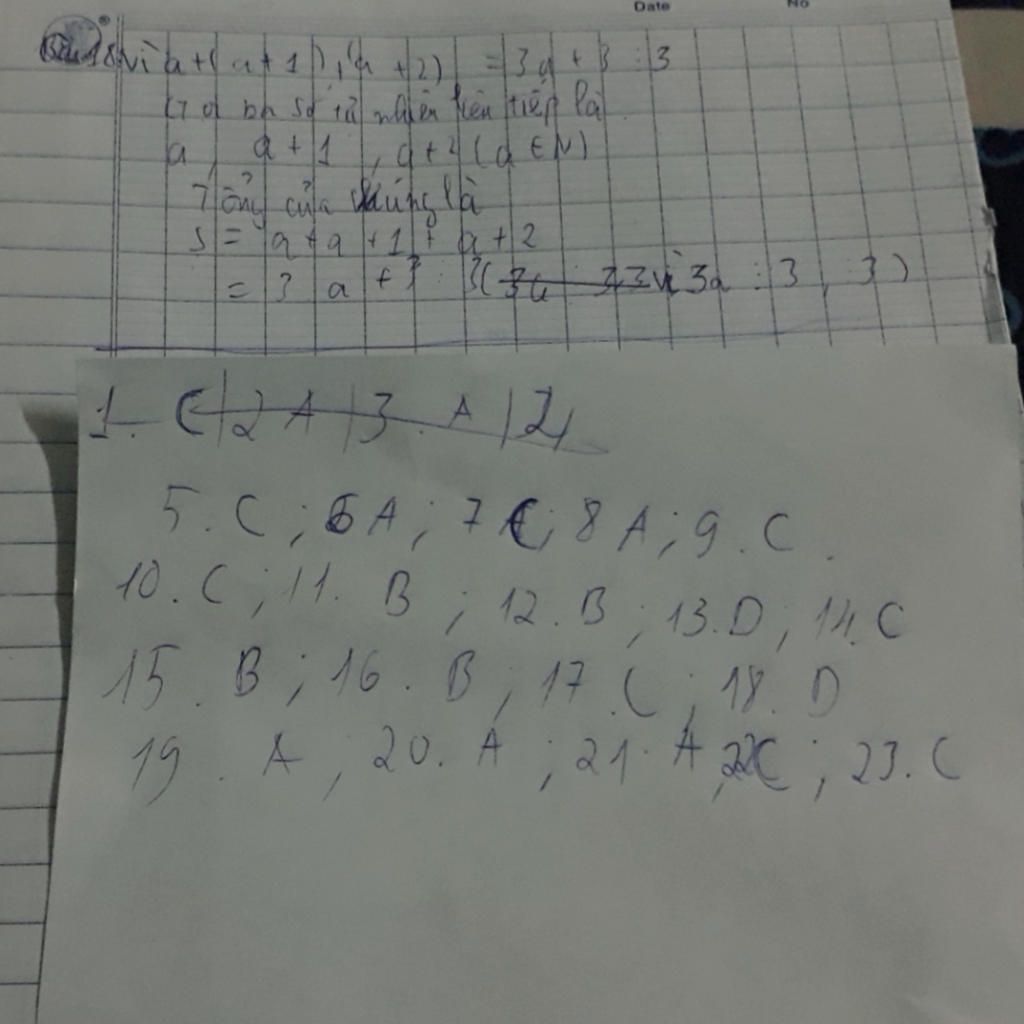 Date No
Bài 18 vì a+(a+1)+(a+2) = 3a+3 ⋮ 3
Gọi ba số tự nhiên liên tiếp là
a, a+1, a+2 (a ∈ N)
Tổng của chúng là
S = a+a+1+a+2
= 3a+3 ⋮ 3( vì 3a ⋮ 3, 3)
1. C | 2 A | 3. A | 2
5. C ; 6 A ; 7 C ; 8 A ; 9. C.
10. C ; 11. B ; 12. B ; 13. D ; 14. C
15. B ; 16. B ; 17. C ; 18. D
19. A ; 20. A ; 21. A ; 22 C ; 23. C